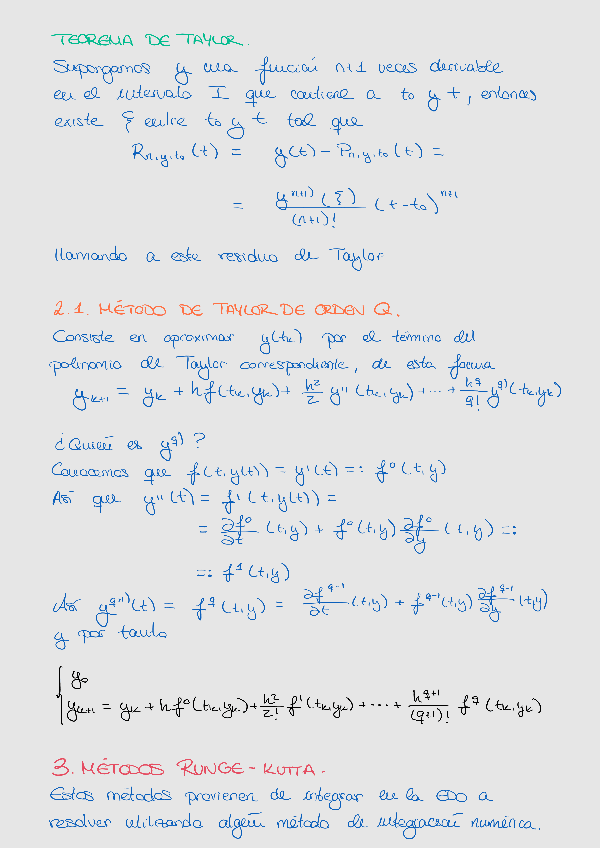 TEOREMA DE TAYLOR.
Supongamos y una función n+1 veces derivable
en el intervalo I que contiene a t₀ y t, entonces
existe ξ entre t₀ y t tal que
Rₙ,y,t₀(t) = y(t) - Pₙ,y,t₀(t) =
= yⁿ⁺¹⁾(ξ)/(n+1)! (t-t₀)ⁿ⁺¹
llamando a este residuo de Taylor
2.1. MÉTODO DE TAYLOR DE ORDEN Q.
Consiste en aproximar y(tₖ) por el término del
polinomio de Taylor correspondiente, de esta forma
yₖ₊₁ = yₖ + hf(tₖ,yₖ) + h²/2 y''(tₖ,yₖ) + ··· + h^q/q! y^q)(tₖ,yₖ)
¿Quién es y^q)?
Conocemos que f(t,y(t)) = y'(t) =: f⁰(t,y)
Así que y''(t) = f'(t,y(t)) =
= ∂f⁰/∂t (t,y) + f⁰(t,y) ∂f⁰/∂y (t,y) =:
=: f¹(t,y)
Así y^q+1)(t) = f^q(t,y) = ∂f^q-1/∂t (t,y) + f^q-1(t,y) ∂f^q-1/∂y (t,y)
y por tanto
{ y₀
yₖ₊₁ = yₖ + hf⁰(tₖ,yₖ) + h²/2! f¹(tₖ,yₖ) + ··· + h^q+1/(q+1)! f^q(tₖ,yₖ)
3. MÉTODOS RUNGE-KUTTA.
Estos métodos provienen de integrar en la EDO a
resolver utilizando algún método de integración numérica.